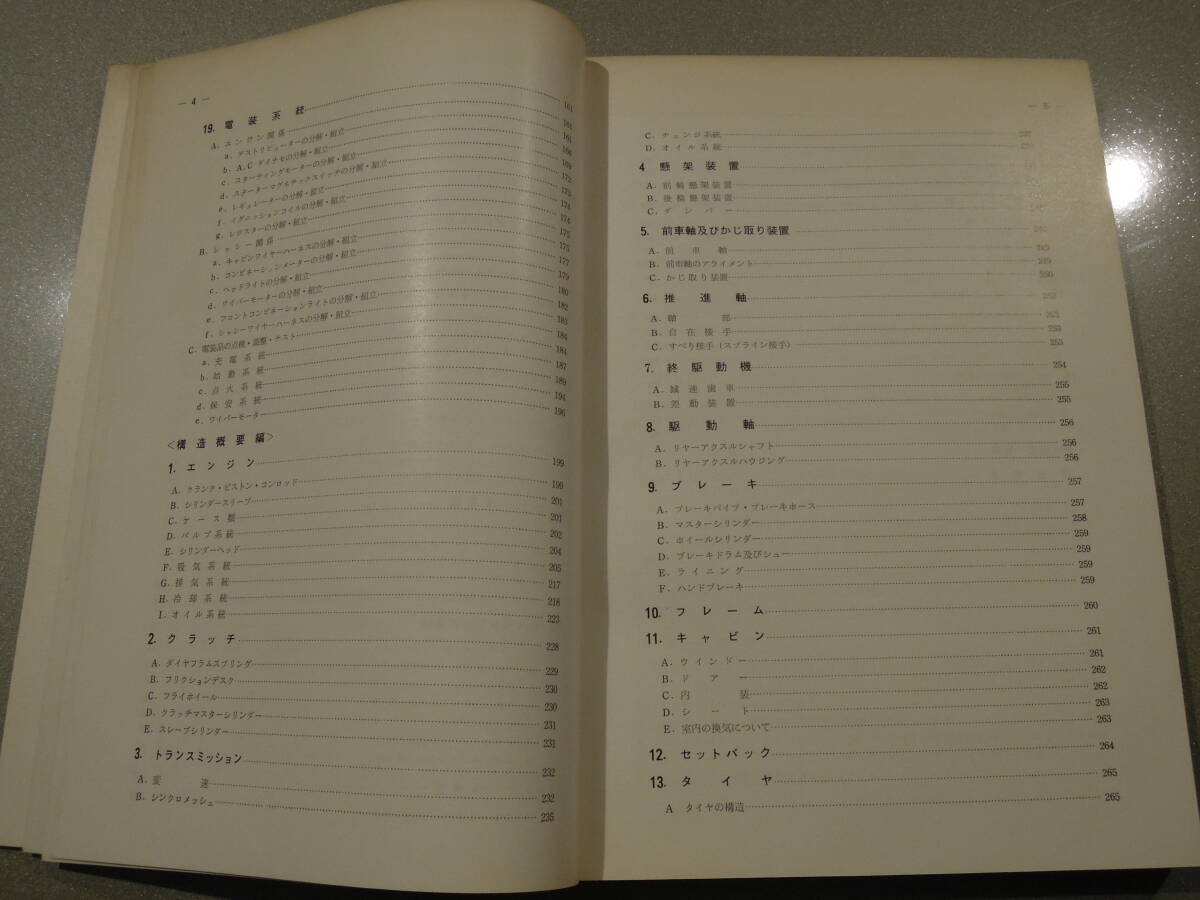 — 4 —
19. 電装系統 161
A. エンジン関係 161
a. デストリビューターの分解・組立 161
b. A.C ダイナモの分解・組立 166
c. スターティングモーターの分解・組立 169
d. スターターマグネチックスイッチの分解・組立 172
e. レギュレーターの分解・組立 173
f. イグニッションコイルの分解・組立 174
g. レジスターの分解・組立 174
B. シャシー関係 175
a. キャビンワイヤーハーネスの分解・組立 175
b. コンビネーションメーターの分解・組立 177
c. ヘッドライトの分解・組立 179
d. ワイパーモーターの分解・組立 180
e. フロントコンビネーションライトの分解・組立 182
f. シャシーワイヤーハーネスの分解・組立 183
C. 電装品の点検・調整・テスト 184
a. 充電系統 184
b. 始動系統 187
c. 点火系統 189
d. 保安系統 194
e. ワイパーモータ 196
<構造概要編>
1. エンジン 199
A. クランク・ピストン・コンロッド 199
B. シリンダースリーブ 201
C. ケース類 201
D. バルブ系統 202
E. シリンダーヘッド 204
F. 吸気系統 205
G. 排気系統 217
H. 冷却系統 218
I. オイル系統 223
2. クラッチ 228
A. ダイヤフラムスプリング 229
B. フリクションデスク 230
C. フライホイール 230
D. クラッチマスターシリンダー 231
E. スレーブシリンダー 231
3. トランスミッション 232
A. 変速 232
B. シンクロメッシュ 235
— 5 —
C. チェンジ系統 237
D. オイル系統
4 懸架装置
A. 前輪懸架装置
B. 後輪懸架装置
C. ダンパー
5. 前車軸及びかじ取り装置
A. 前車軸
B. 前車軸のアライメント 249
C. かじ取り装置 250
6. 推進軸 252
A. 軸部 253
B. 自在接手 253
C. すべり接手 (スプライン接手) 253
7. 終駆動機 254
A. 減速歯車 255
B. 差動装置 255
8. 駆動軸 256
A. リヤーアクスルシャフト 256
B. リヤーアクスルハウジング 256
9. ブレーキ 257
A. ブレーキパイプ・ブレーキホース 257
B. マスターシリンダー 258
C. ホイールシリンダー 259
D. ブレーキドラム及びシュー 259
E. ライニング 259
F. ハンドブレーキ 259
10. フレーム 260
11. キャビン 261
A. ウインドー 261
B. ドアー 262
C. 内装 262
D. シート 263
E. 室内の換気について 263
12. セットバック 264
13. タイヤ 265
A タイヤの構造 265